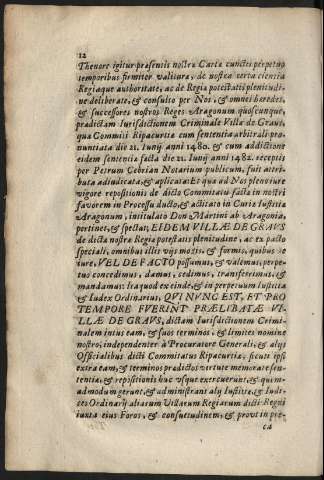 12
Thenore igitur præsentis nostræ Cartæ cunctis perpetuo
temporibus firmiter valitura, de nostra certa cientia
Regiaque authoritate, ac de Regia potestatis plenitudi-
ne deliberate, & consulto per Nos, & omnes hæredes,
& successores nostros Reges Aragonum quoscunque,
prædictam Iurisdictionem Criminale Villæ de Graus,
qua Commissi Ripacurtiæ cum sententia arbitrali pro-
nuntiata die 21. Iunij anni 1480. & cum additione
eidem sentencia facta die 21. Iunij anni 1482. receptis
per Petrum Cebrian Notarium publicum, fuit attri-
buta adiudicata, & aplicata: Et qua ad Nos pleno iure
vigore repositionis de dicto Commitatu facta in nostri
favorem in Processu ducto, & actitato in Curia Iustitia
Aragonum, institulato Don Martini ab Aragonia,
pertinet, & spectat, EIDEM VILLÆ DE GRAVS
de dicta nostra Regia potestatis plenitudine, ac ex pacto
speciali, omnibus illis vijs modis, & formis, quibus de
iure, VEL DE FACTO possumus, & valemus, perpe-
tuo concedimus, damus, cedimus, transferimus, &
mandamus: Ita quod ex einde, & in perpetuum Iustitia
& Iudex Ordinarius, QVI NVNC EST, ET PRO
TEMPORE FVERINT PRÆLIBATÆ VI-
LLÆ DE GRAVS, dictam Iurisdictionem Crimi-
nalem intus eam, & suos terminos, & limites nomine
nostro, independenter à Procuratore Generali, & alijs
Officialibus dicti Commitatus Ripacurtiæ, sicuti ipsi
extra eam, & terminos prædictos virtute memorate sen-
tentiæ, & repositionis huc vsque exercuerunt, & quem-
admodum gerunt, & administrant alij Iustitiæ, & Iudi-
ces Ordinarij aliarum Villarum Regiarum dicti Regni
iuxta eius Foros, & consuetudinem, & prout in præ-
ca